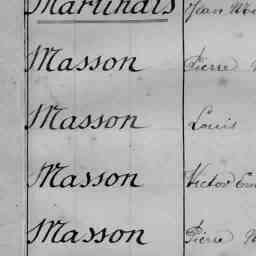 Martinais Jean
Masson Pierre
Masson Louis
Masson Victor
Masson Pierre